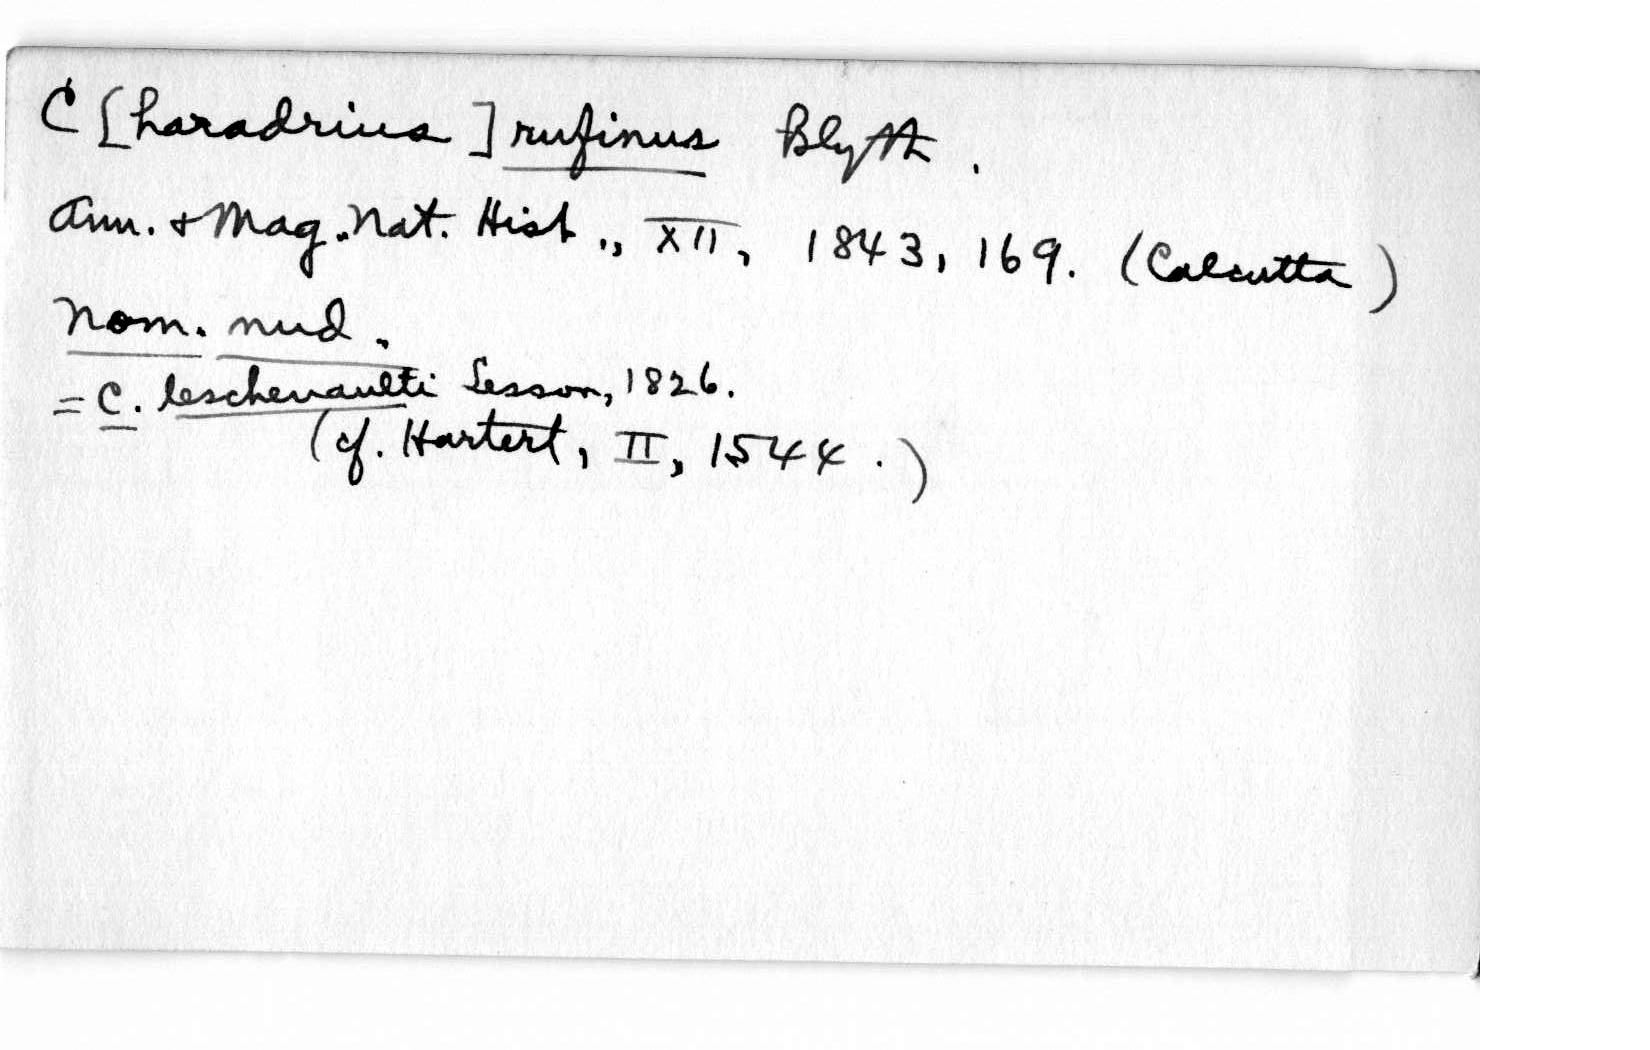 C[haradrius] rufinus Blyth.
Ann. & Mag. Nat. Hist., XII, 1843, 169. (Calcutta)
Nom. nud.
= C. leschenaulti Lesson, 1826.
(cf. Hartert, II, 1544.)